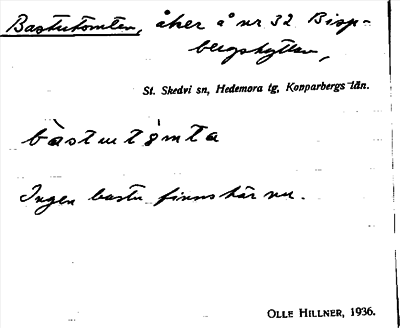 Bastutomten, åker å nr 32 Bisp-
bergshyttan,
St. Skedvi sn, Hedemora tg, Kopparbergs län.
bàstutòmta
Ingen bastu finns här nu.
OLLE HILLNER, 1936.